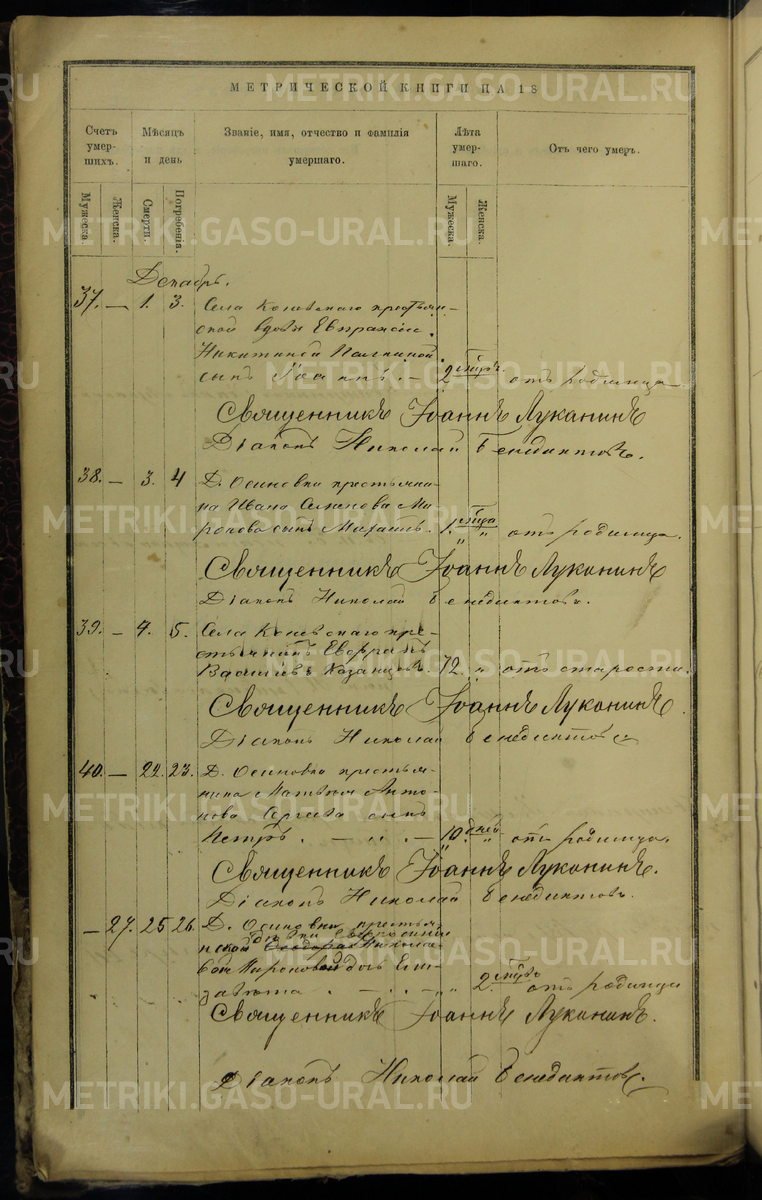 МЕТРИЧЕСКОЙ КНИГИ НА 18
Счетъ умер-шихъ.
Мѣсяцъ и день
Званіе, имя, отчество и фамилія умершаго.
Лѣта умер-шаго.
Отъ чего умеръ.
Мужеска.
Женска.
Смерти.
Погребенія.
Мужеска.
Женска.
Декабрь.
37. — 1. 3. Села Коневскаго крестьян-
ской вдовы Евпраксіи
Никитиной
сынъ Іоаннъ. — 2 отъ родимца
Священникъ Іоаннъ Луканинъ
Діаконъ Николай Бенедиктовъ.
38. — 3. 4 Д. Осиновки крестьяни-
на Ивана Семенова Ми-
ронова сынъ Михаилъ. 1. года отъ родимца.
Священникъ Іоаннъ Луканинъ
Діаконъ Николай Бенедиктовъ.
39. — 4. 5. Села Коневскаго кре-
стьянинъ
Васильевъ Казанцовъ. 72. " отъ старости.
Священникъ Іоаннъ Луканинъ.
Діаконъ Николай Бенедиктовъ
40. — 22. 23. Д. Осиновки крестья-
нина Матвея Анто-
нова Сергеева сынъ
Петръ. — " — 10. дней " отъ родимца.
Священникъ Іоаннъ Луканинъ.
Діаконъ Николай Бенедиктовъ.
— 27. 25 26. Д. Осиновки крестья-
нской Никола-
евой Мироновой дочь Ели-
завета. — " — " 2. отъ родимца
Священникъ Іоаннъ Луканинъ.
Діаконъ Николай Бенедиктовъ.
METRIKI.GASO-URAL.RU